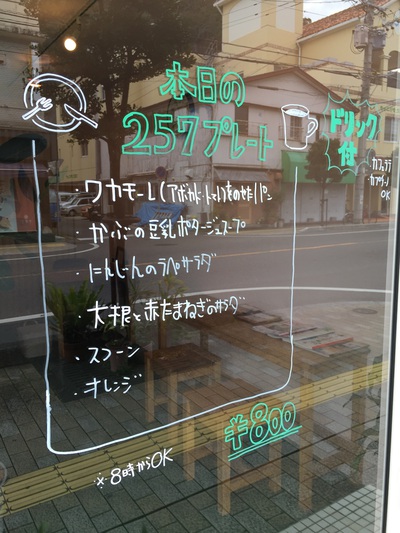 本日の
257プレート
ドリンク
付
カフェラテ
カプチーノ
OK
・ワカモーレ(アボカド・トマト)をのせたパン
・かぶの豆乳ポタージュスープ
・にんじんのラペサラダ
・大根と赤たまねぎのサラダ
・スコーン
・オレンジ
¥800
※8時からOK